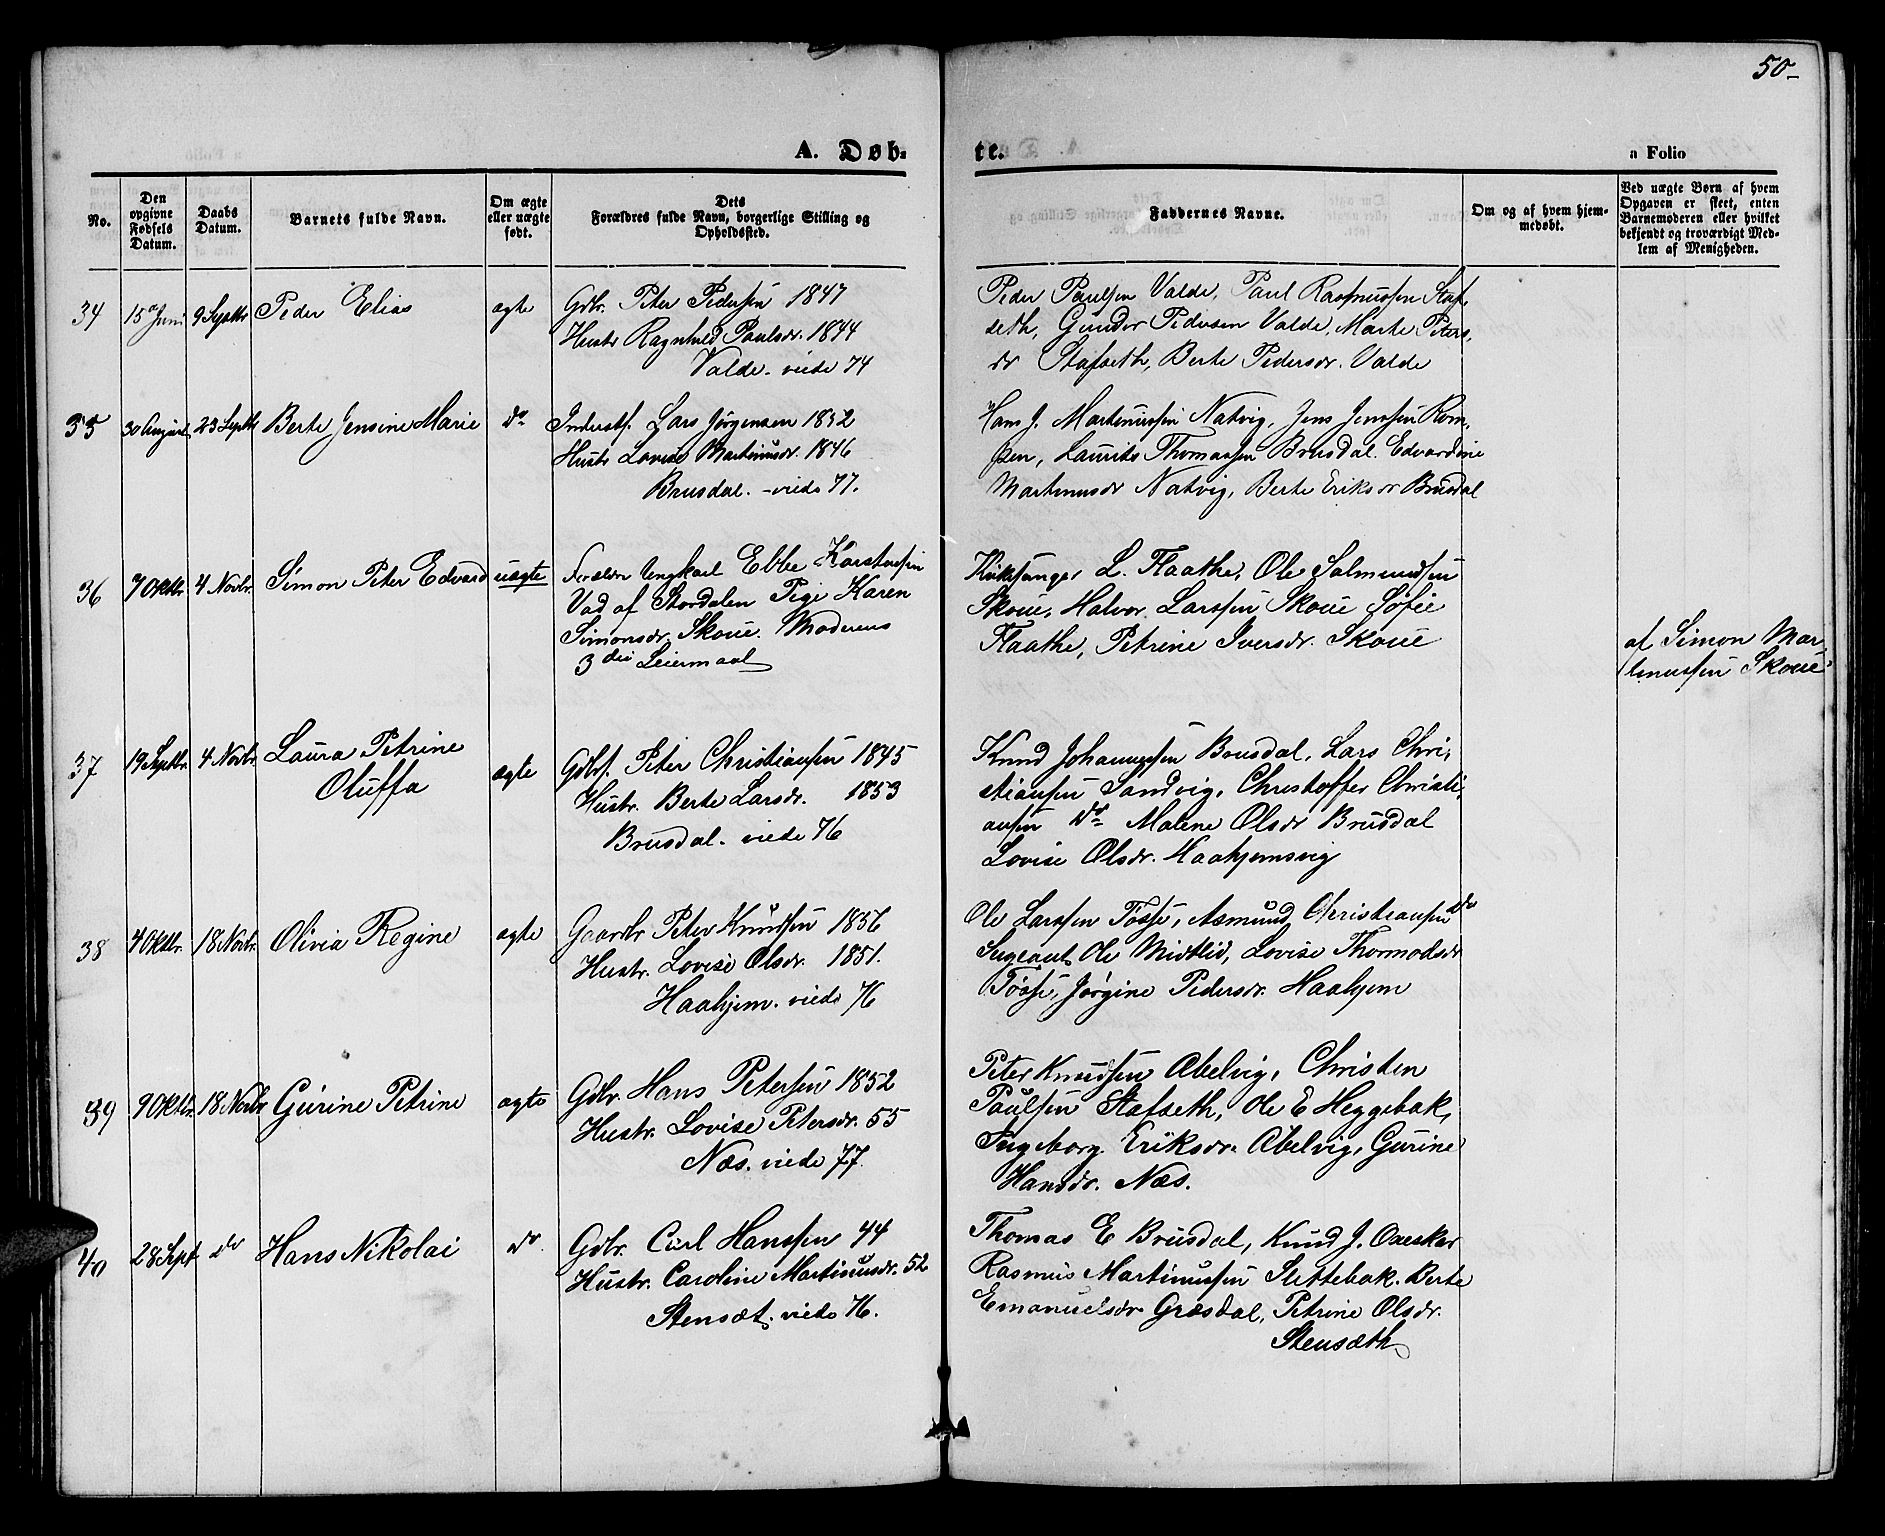 50-
A. Døb-
te.
a Folio
No.
Den opgivne Fødsels Datum.
Daabs Datum.
Barnets fulde Navn.
Om ægte eller uægte født.
Dets
Forældres fulde Navn, borgerlige Stilling og
Opholdssted.
Faddernes Navne.
Om og af hvem hjem-
medøbt.
Ved uægte Børn af hvem
Opgaven er skeet, enten
Barnemoderen eller hvilket
bekjendt og troværdigt Med-
lem af Menigheden.
34 15de Juni 9 Septbr Peder Elias ægte Gdbr. Peter Pedersen 1847
Hustr Ragnhild Paulsdr. 1844
Valde. viede 74
Peder Paulsen Valde, Paul Rasmussen Staf-
seth, Gunder Pedersen Valde, Marte Peters-
dr Stafseth, Berte Pedersdr. Valde
35 30 August 23 Septbr Berte Jensine Marie do Inderstf. Lars Jørgensen 1852
Hustr Lovise Martinusdr. 1846
Brusdal. - viede 77.
Hans J. Martinussen Natvig, Jens Jenssen
Laurits Thomassen Brusdal. Edvardine
Martinusdr Natvig, Berte Eriksdr Brusdal
36 7 Oktbr. 4 Novbr. Simon Peter Edvard uægte Forældre Ungkarl Ebbe Karstensen
Vad af Stordalen Pige Karen
Simonsdr. Skoue. Moderens
3die Leiermaal
Kirksanger L. Flaathe, Ole Salmundsen
Skoue, Halvor Larssen Skoue Sofie
Flaathe, Petrine Iversdr. Skoue
af Simon Mar-
tinussen Skoue
37 19 Septbr. 4 Novbr. Laura Petrine
Oluffa
ægte Gdbf. Peter Christiansen 1845
Hustr. Berte Larsdr. 1853
Brusdal. viede 76
Knud Johannessen Brusdal, Lars Chri-
stiansen Sandvig, Christoffer Christi-
ansen do Malene Olsdr Brusdal
Lovise Olsdr. Haahjemsvig
38 4 Oktbr. 18 Novbr. Olivia Regine ægte Gaardbr Peter Knudsen 1856
Hustr. Lovise Olsdr. 1851.
Haahjem. viede 76
Ole Larssen Tøsse, Asmund Christiansen do
Sergeant Ole Midtlid, Lovise Thormodsdr
Tøsse, Jørgine Pedersdr. Haahjem
39 9 Oktbr. 18 Novbr Gurine Petrine ægte Gdbr. Hans Petersen 1852
Hustr. Lovise Petersdr. 55
Næs. viede 77.
Peter Knudsen Abelvig, Christen
Paulsen Stafseth, Ole E Heggebak,
Ingeborg Eriksdr. Abelvig, Gurine
Hansdr. Næs.
40 28 Sept do Hans Nikolai do. Gdbr. Carl Hanssen 44
Hustr. Caroline Martinusdr. 52
Stensæt. viede 76.
Thomas E Brusdal, Knud J. Oxeskar
Rasmus Martinussen Slettebak. Berte
Emanuelsdr Græsdal, Petrine Olsdr.
Stensæth